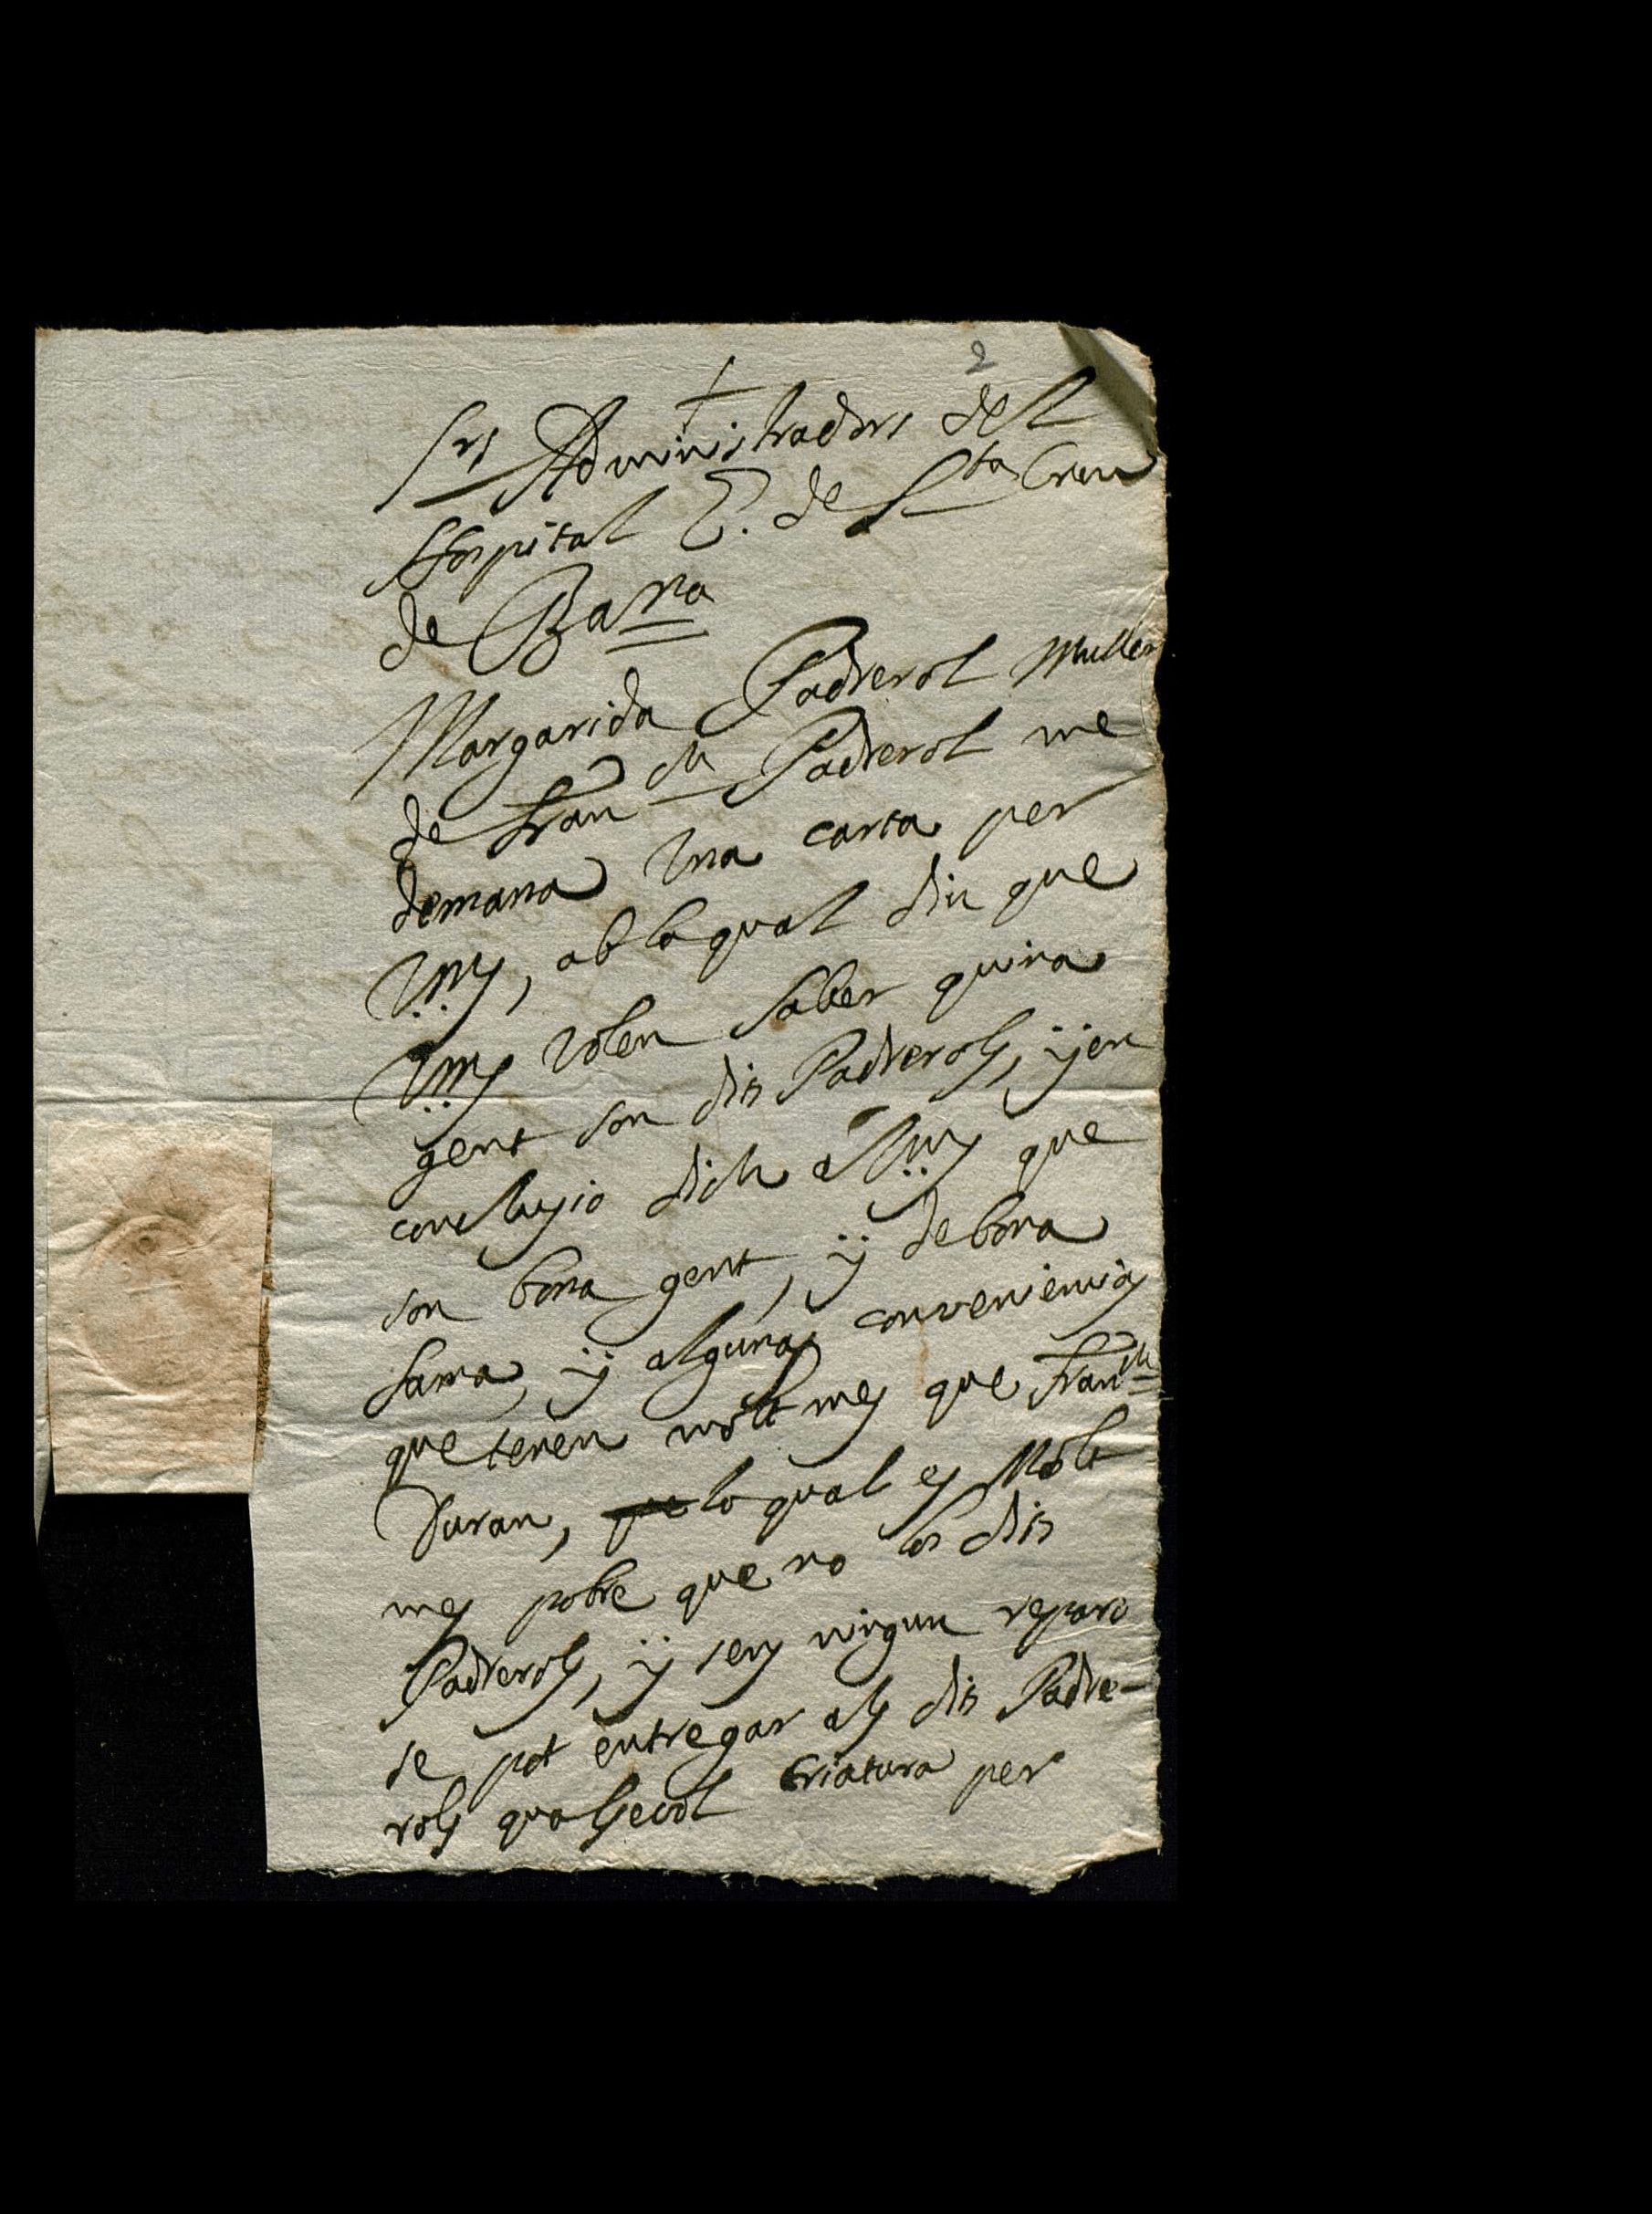 2
+
Srs Administradors del
Hospital G. de Sta Creu
de Barna
Margarida Padrerol Muller
de Franch Padrerol me
demana Una carta per
Vms, ab la qual diu que
Vms volen saber quina
gent son dits Padrerols, ÿ en
conclusio dich a Vms que
son bona gent, ÿ de bona
fama, ÿ algunas conveniencias
que tenen mólt mes que Franch
Duran, que lo qual es Mólt
mes pobre que no los dits
Padrerols, ÿ sens ningun reparo
se pot entregar als dits Padre-
rols qualsevol criatura per